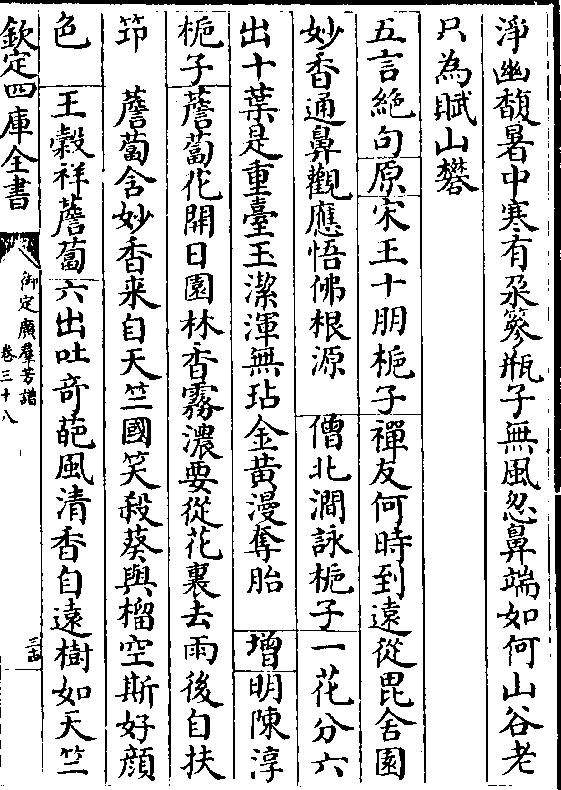 淨幽馥暑中寒有朶篸瓶子無風忽鼻端如何山谷老
只為賦山礬
五言絶句原宋王十朋梔子禪友何時到遠從毘舍園
妙香通鼻觀應悟佛根源　僧北澗詠梔子一花分六
出十葉是重臺玉潔渾無玷金黄漫奪胎　增明陳淳
梔子薝蔔花開日園林香霧濃要從花裏去雨後自扶
笻　薝蔔含妙香来自天竺國笑殺葵與榴空斯好顔
色　王穀祥薝蔔六出吐奇葩風清香自遠樹如天竺
欽定四庫全書
御定廣羣芳譜
卷三十八
三十四